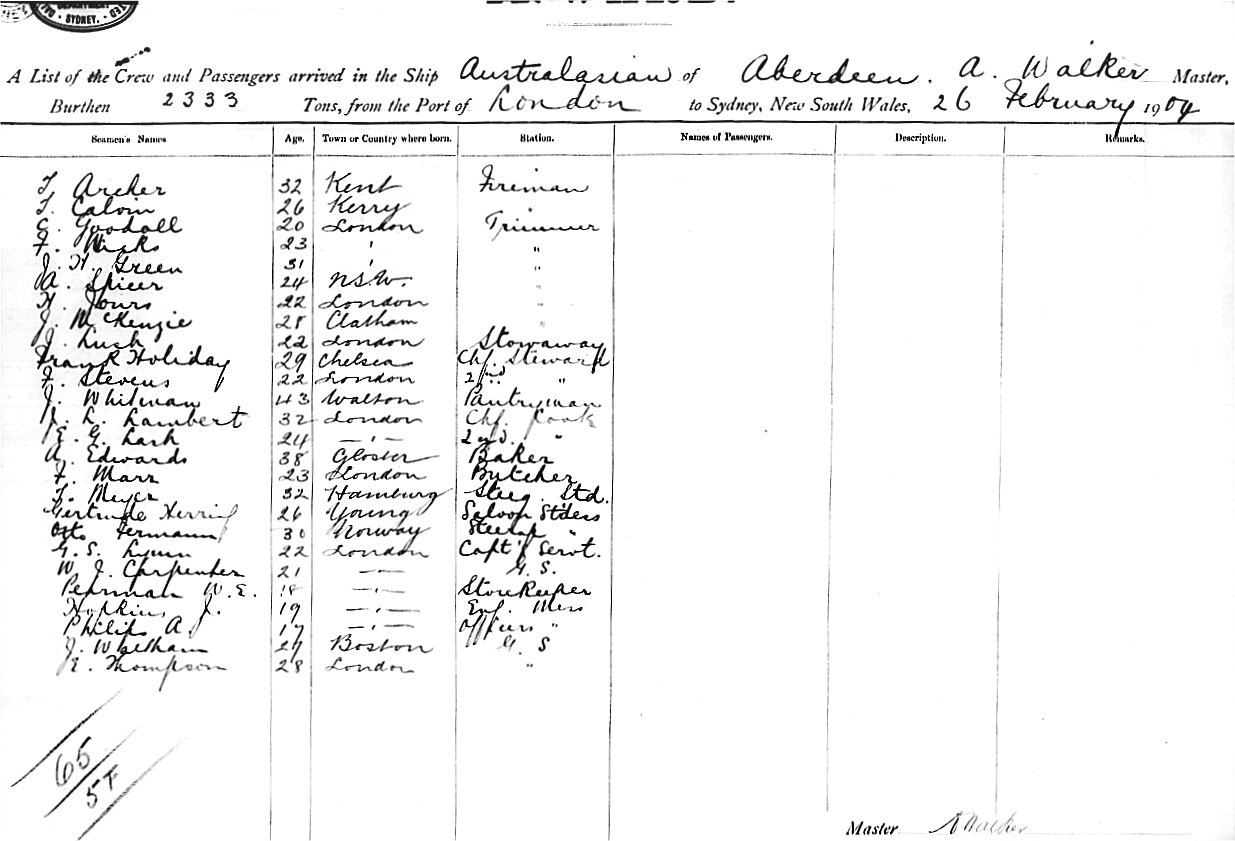 SYDNEY.
A List of the Crew and Passengers arrived in the Ship Australasian of Aberdeen. A. Walker Master,
Burthen 2333 Tons, from the Port of London to Sydney, New South Wales, 26 February 1904
Seamen's Names Age. Town or Country where born. Station. Names of Passengers. Description. Remarks.
T. Archer 32 Kent Fireman
T. Calvin 26 Kerry "
C. Goodall 20 London Trimmer
F. Hicks 23 " "
J. H. Green 31 " "
A. Spicer 24 N.S.W. "
H. 22 London "
J. McKenzie 28 Clatham "
J. 22 London Stowaway
Frank Holiday 29 Chelsea Chf. Steward
F. Stevens 22 London 2nd "
J. Whitman 43 Walton Pantryman
J. L. Lambert 32 London Chf. Cook
E. G. Lash 24 — " — 2nd. "
A. Edwards 38 Gloster Baker
F. Marr 23 London Butcher
T. Meyer 32 Hamburg Steeg. Std.
Gertrude 26 Young Saloon St'dess
Otto 30 Norway "
G. S. Lynn 22 London Capt's Servt.
W. J. Carpenter 21 — " — G. S.
Pearman W. E. 18 — " — Storekeeper
Hopkins, J. 19 — " — Eng. Mess
Philips A. 17 — " — Officers "
J. Whelham 27 Boston G. S
E. Thompson 28 London "
65
57
Master A Walker